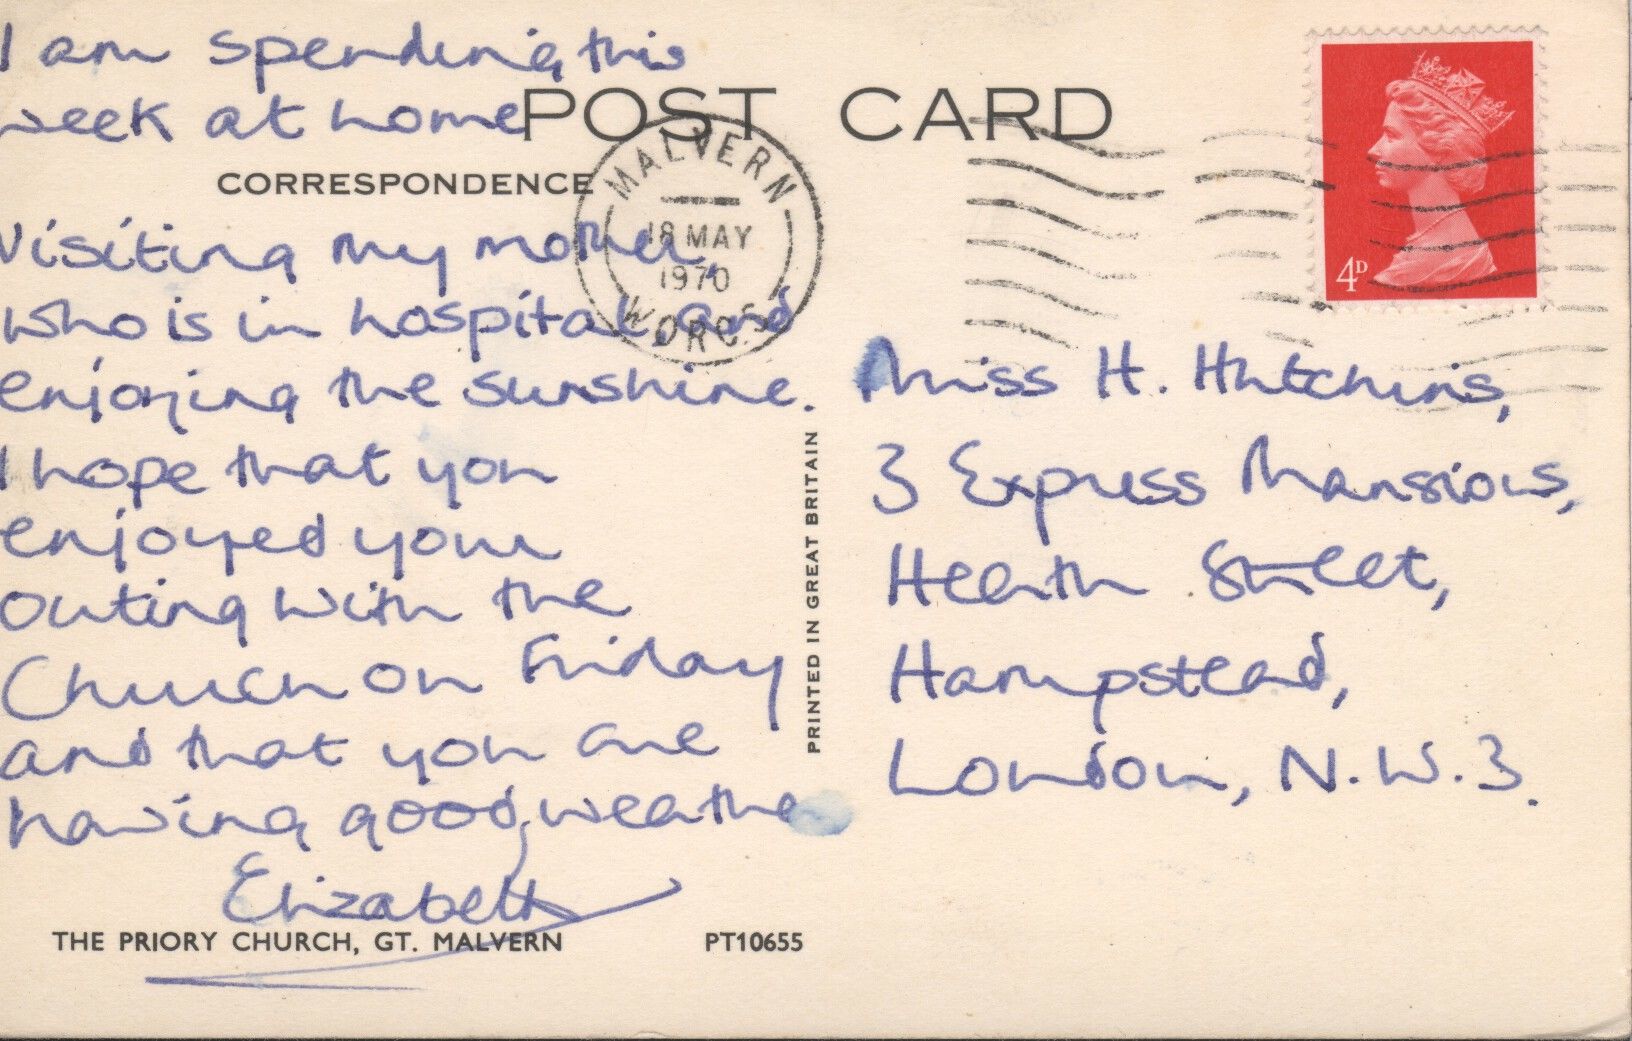 I am spending this
week at home
POST CARD
CORRESPONDENCE
MALVERN
18 MAY
1970
WORCS
4D
visiting my mother,
who is in hospital, and
enjoying the sunshine.
I hope that you
enjoyed your
outing with the
Church on Friday
and that you are
having good weather
Elizabeth
THE PRIORY CHURCH, GT. MALVERN
PT10655
PRINTED IN GREAT BRITAIN
Miss H. Hutchins,
3 Express Mansions,
Heath Street,
Hampstead,
London, N.W.3.